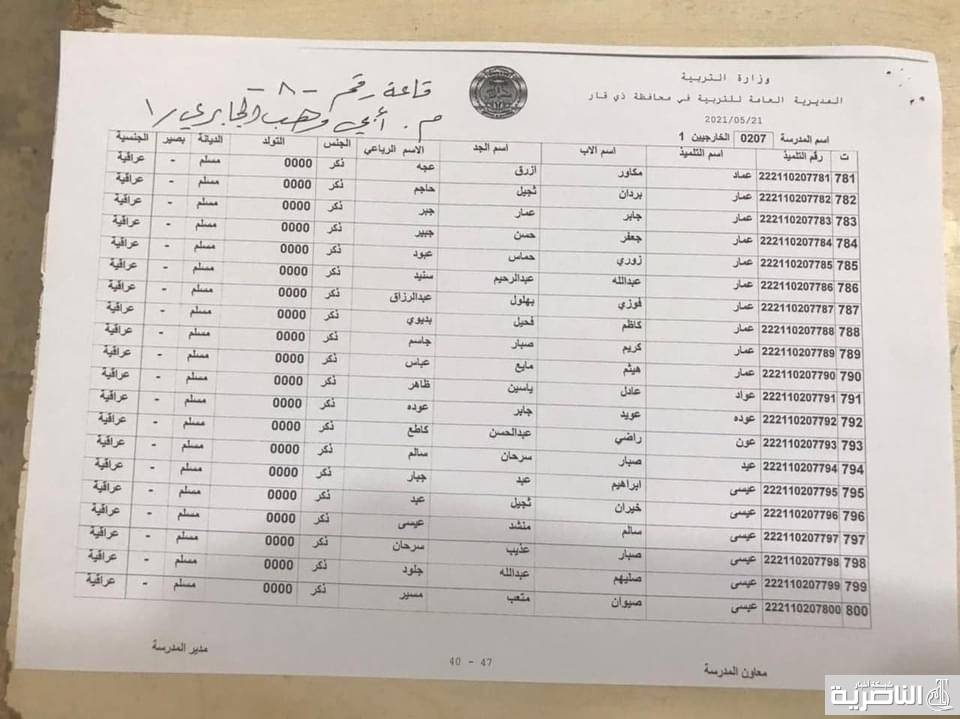 وزارة التربية
المديرية العامة للتربية في محافظة ذي قار
2021/05/21
قاعة رقم - ٨ -
م. أبي وهب الجابري /١
اسم المدرسة 0207 الخارجيين 1
ت رقم التلميذ اسم التلميذ اسم الاب اسم الجد الاسم الرباعي الجنس التولد الديانة بصير الجنسية
781 222110207781 عماد مكاور ازرق عجه ذكر 0000 مسلم - عراقية
782 222110207782 عمار بردان ثجيل حاجم ذكر 0000 مسلم - عراقية
783 222110207783 عمار جابر عمار جبر ذكر 0000 مسلم - عراقية
784 222110207784 عمار جعفر حسن جبير ذكر 0000 مسلم - عراقية
785 222110207785 عمار زوري حماس عبود ذكر 0000 مسلم - عراقية
786 222110207786 عمار عبدالله عبدالرحيم سنيد ذكر 0000 مسلم - عراقية
787 222110207787 عمار فوزي بهلول عبدالرزاق ذكر 0000 مسلم - عراقية
788 222110207788 عمار كاظم فحيل بديوي ذكر 0000 مسلم - عراقية
789 222110207789 عمار كريم صبار جاسم ذكر 0000 مسلم - عراقية
790 222110207790 عمار هيثم مايع عباس ذكر 0000 مسلم - عراقية
791 222110207791 عواد عادل ياسين ظاهر ذكر 0000 مسلم - عراقية
792 222110207792 عوده عويد جابر عوده ذكر 0000 مسلم - عراقية
793 222110207793 عون راضي عبدالحسن كاطع ذكر 0000 مسلم - عراقية
794 222110207794 عيد صبار سرحان سالم ذكر 0000 مسلم - عراقية
795 222110207795 عيسى ابراهيم عبد جبار ذكر 0000 مسلم - عراقية
796 222110207796 عيسى خيران ثجيل عبد ذكر 0000 مسلم - عراقية
797 222110207797 عيسى سالم منشد عيسى ذكر 0000 مسلم - عراقية
798 222110207798 عيسى صبار عذيب سرحان ذكر 0000 مسلم - عراقية
799 222110207799 عيسى صليهم عبدالله جلود ذكر 0000 مسلم - عراقية
800 222110207800 عيسى صيوان متعب مسير ذكر 0000 مسلم - عراقية
معاون المدرسة
40 - 47
مدير المدرسة
شبكة أخبار
الناصرية